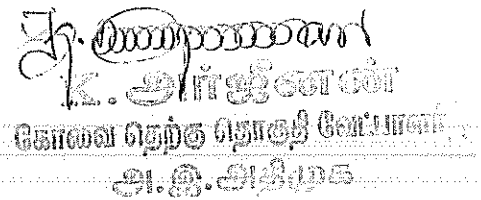 K. அர்ஜுனன்
கோவை தெற்கு தொகுதி வேட்பாளர்
அ.இ.அதிமுக